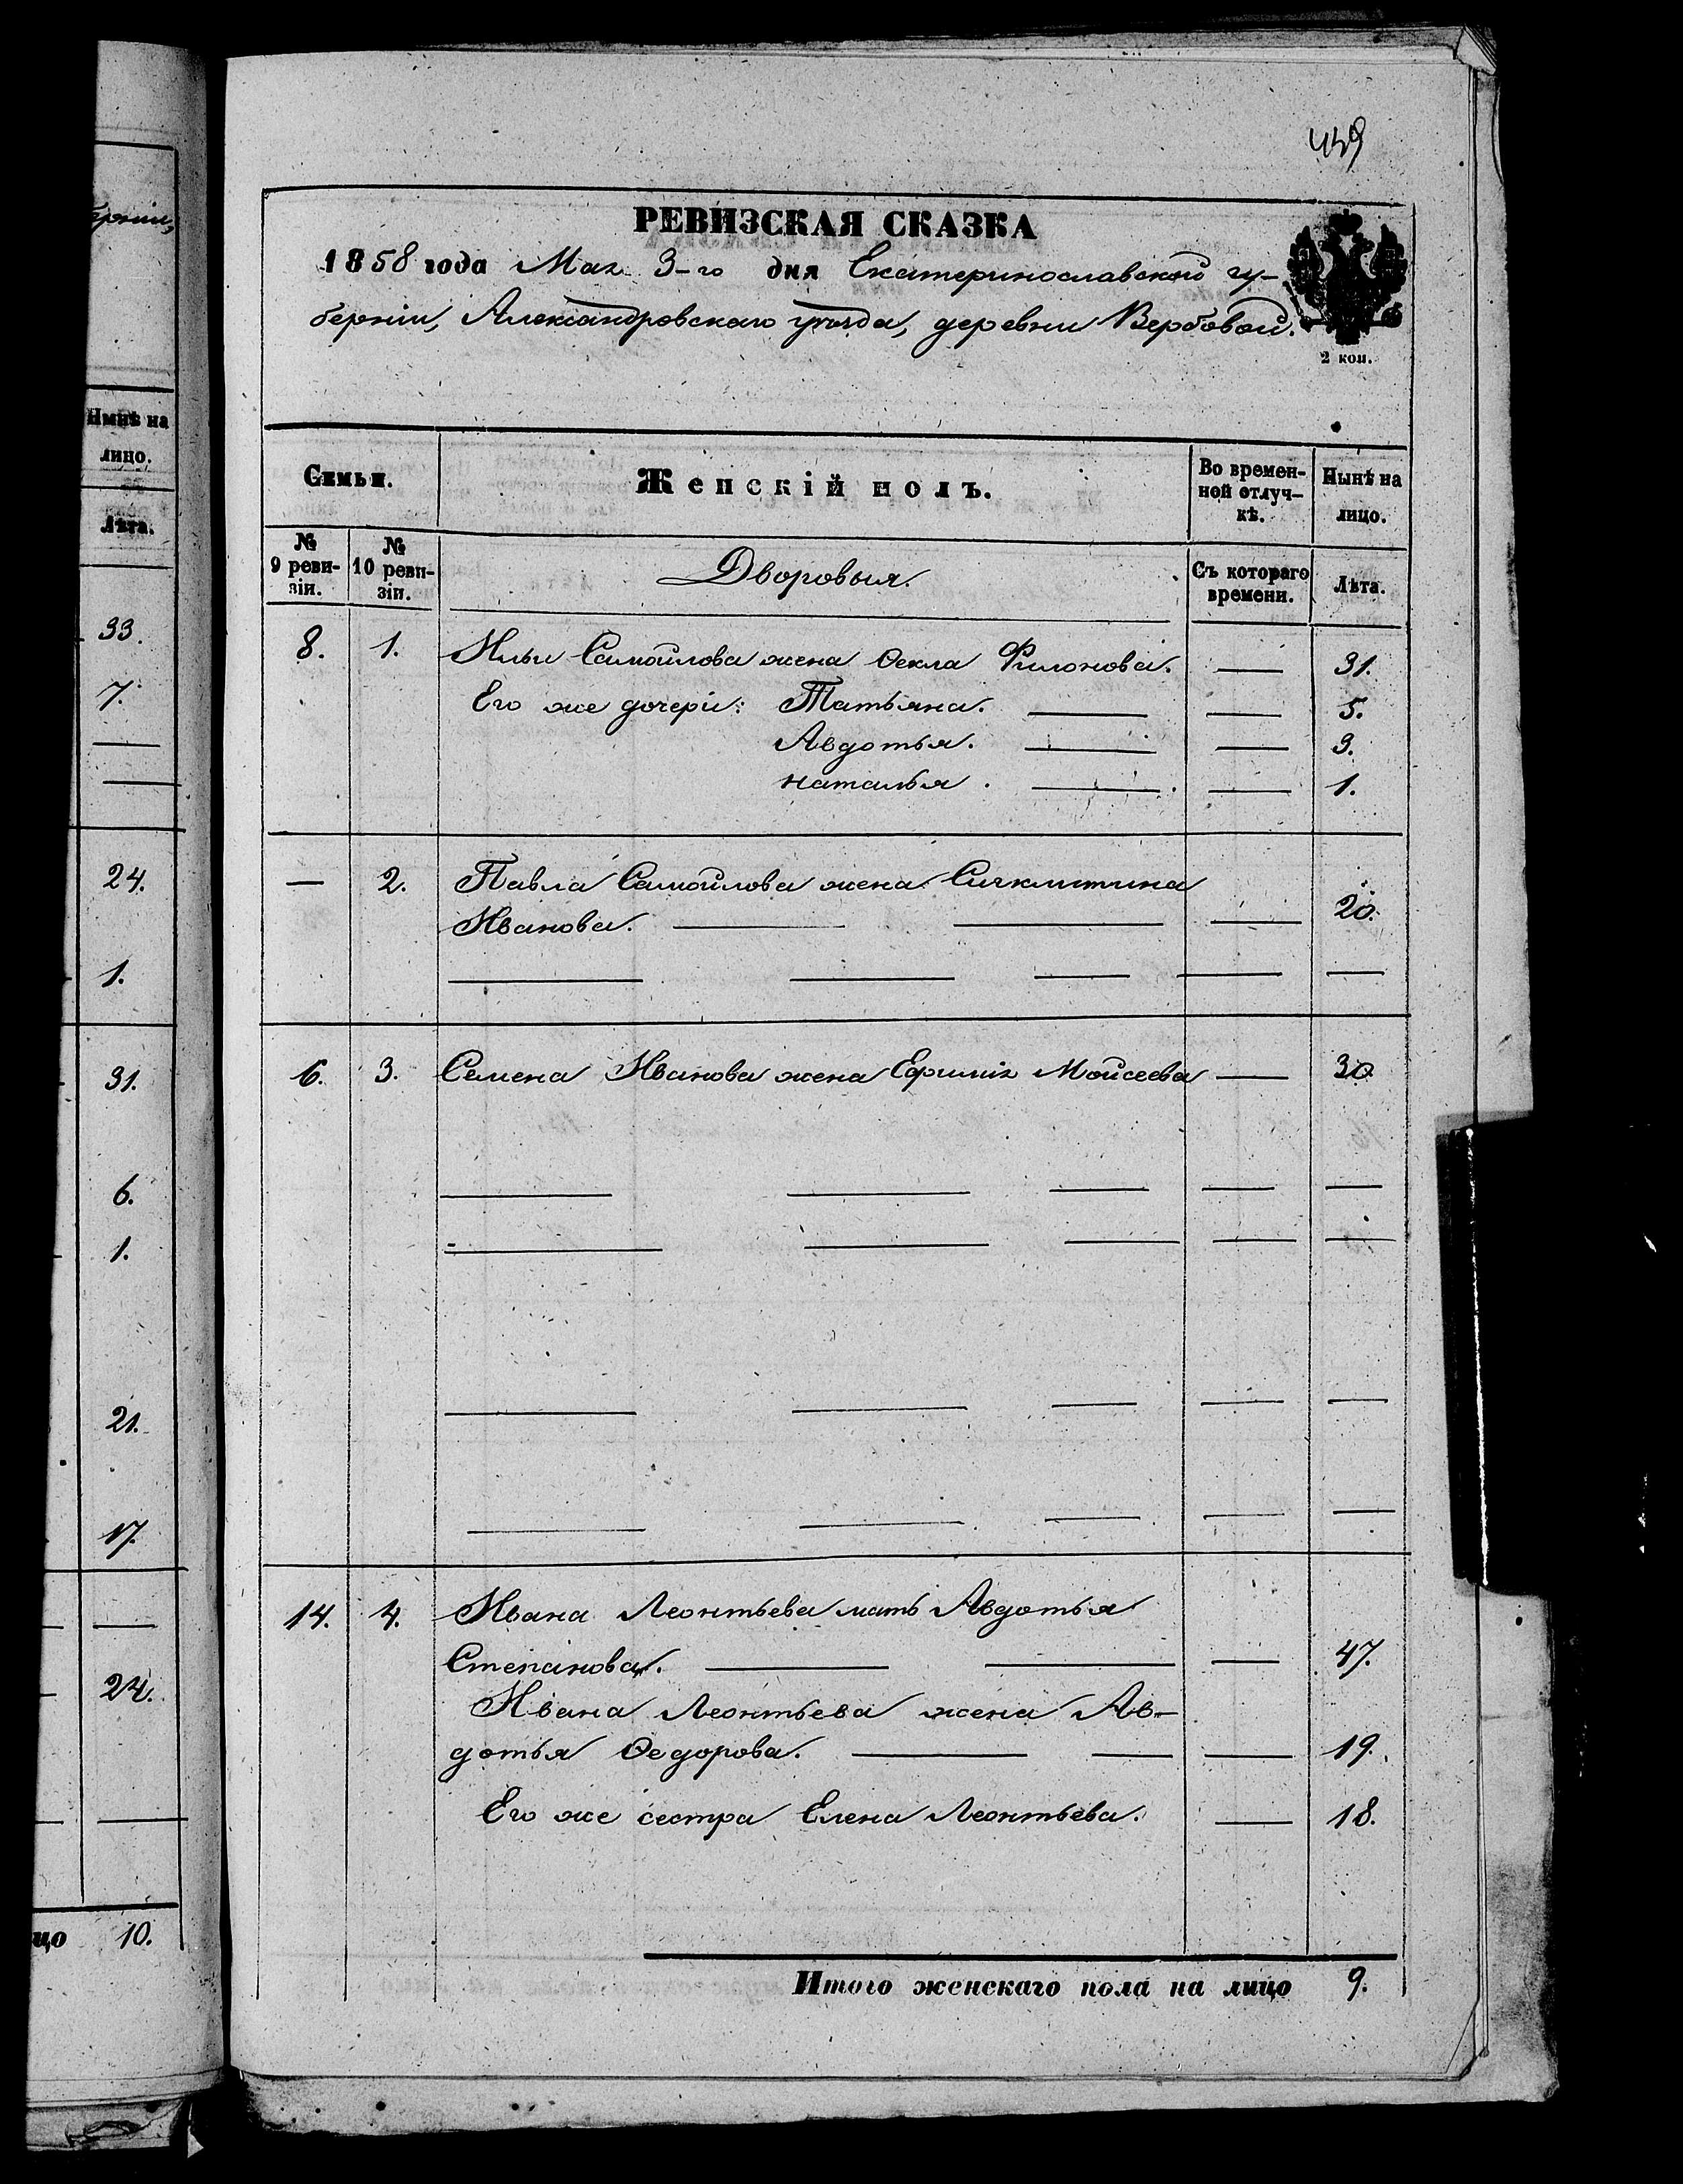 459
РЕВИЗСКАЯ СКАЗКА
1858 года Мая 3-го дня Екатеринославской гу-
берніи, Александровскаго уѣзда, деревни Вербовой.
2 коп.
Семьи. Женскій полъ. Во времен-ной отлуч-кѣ. Нынѣ на лицо.
№ 9 реви-зіи. № 10 реви-зіи. Дворовыя. Съ котораго времени. Лѣта.
8. 1. Ильи Самойлова жена Ѳекла Филонова. — 31.
Его же дочери: Татьяна. — — 5.
Авдотья. — — 3.
Наталья. — — 1.
— 2. Павла Самойлова жена
Иванова. — — — 20.
— — — — —
6. 3. Семена Иванова жена Ефимія Мойсеева — 30
— — — — —
— — — — —
— — — — —
— — — — —
14. 4. Ивана Леонтьева мать Авдотья
Степанова. — — — 47.
Ивана Леонтьева жена Ав-
дотья Ѳедорова. — — — 19.
Его же сестра Елена Леонтьева. — 18.
Итого женскаго пола на лицо 9.
берніи,
Нынѣ на
лицо.
Лѣта.
33.
7.
—
—
24.
1.
31.
6.
1.
21.
17.
—
24.
—
цо 10.